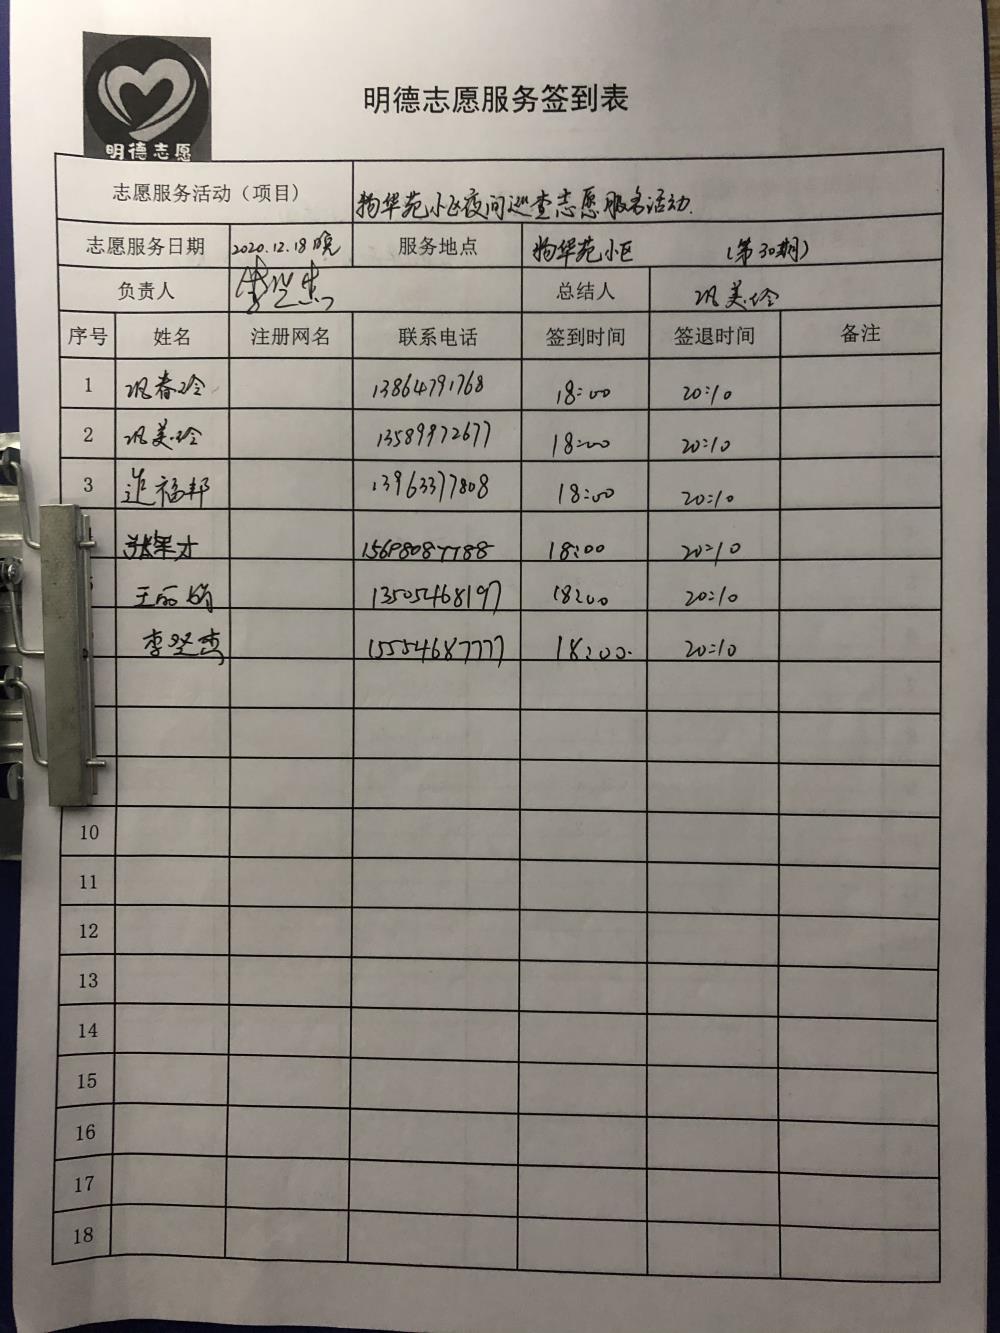 明德志愿
明德志愿服务签到表
志愿服务活动（项目） 物华苑小区夜间巡查志愿服务活动.
志愿服务日期 2020.12.18晚 服务地点 物华苑小区 (第30期)
负责人 总结人 巩美玲
序号 姓名 注册网名 联系电话 签到时间 签退时间 备注
1 巩春玲 13864791768 18:00 20:10
2 巩美玲 13589972677 18:00 20:10
3 福邦 13963377808 18:00 20:10
18:00 20:10
王丽娟 13505468197 18:00 20:10
李坚杰 15554687777 18:00. 20:10
10
11
12
13
14
15
16
17
18